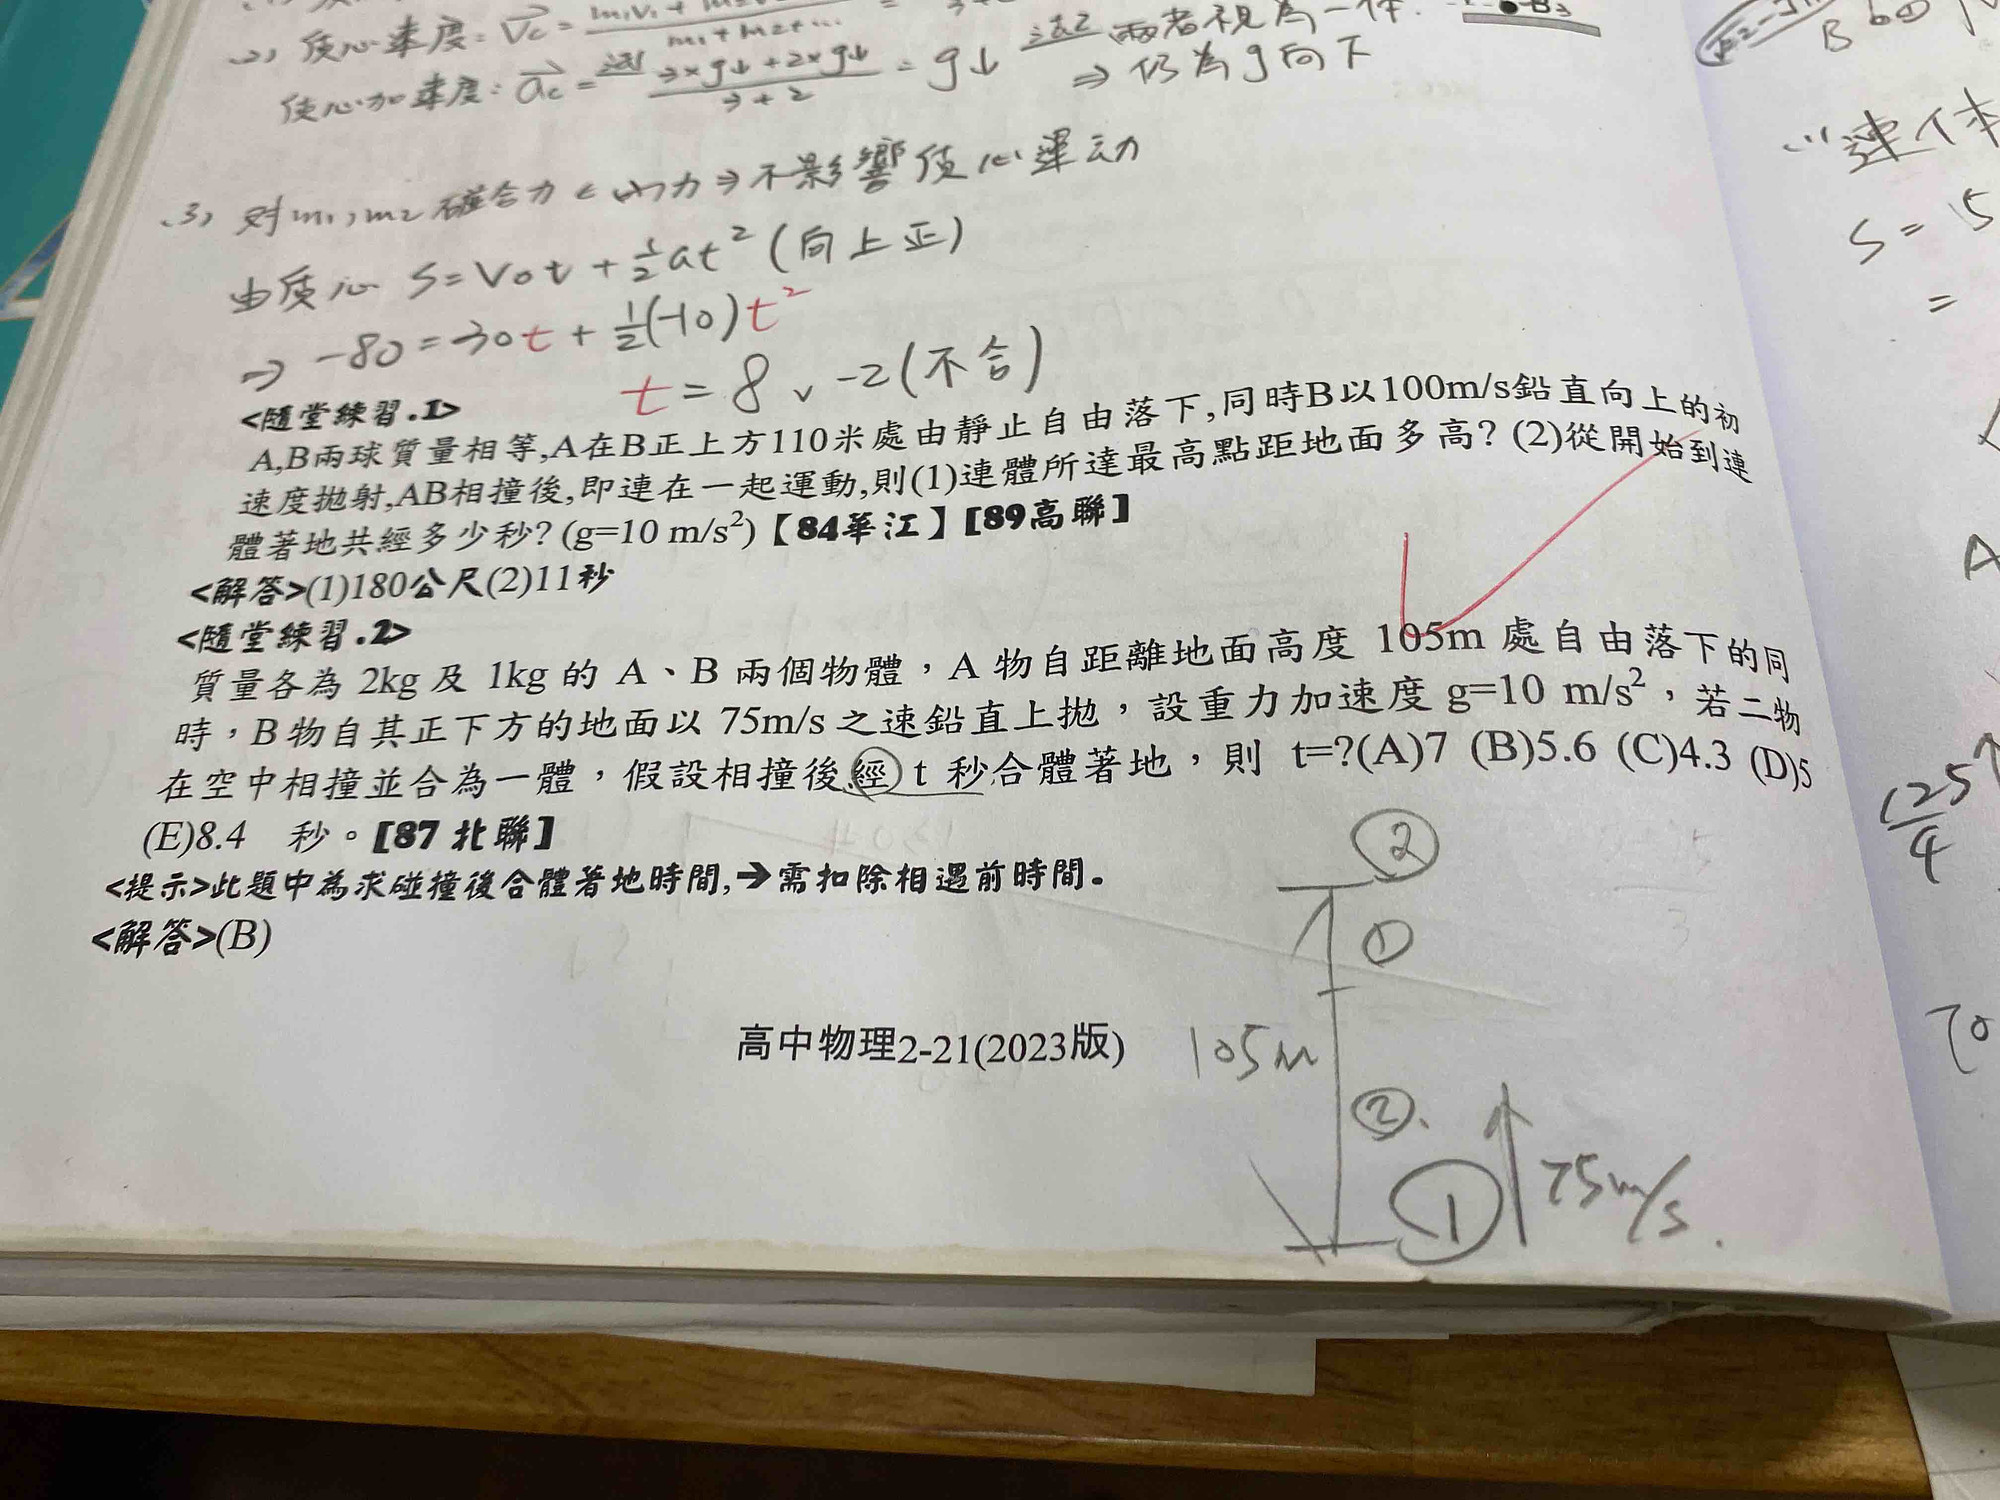 (2) 質心速度: Vc = m1v1 + m2v2 / m1 + m2 + ... =
質心加速度: ac = 法1 3×g↓ + 2×g↓ / 3 + 2 = g↓ 法2 兩者視為一体.
⇒ 仍為g向下
(3) 對m1, m2 碰合力 ∈ 內力 ⇒ 不影響質心運动
由質心 S = Vot + ½at² (向上正)
⇒ -80 = 30t + ½(-10)t²
t = 8 , -2 (不合)
<隨堂練習.1>
A,B兩球質量相等,A在B正上方110米處由靜止自由落下,同時B以100m/s鉛直向上的初
速度拋射,AB相撞後,即連在一起運動,則(1)連體所達最高點距地面多高? (2)從開始到連
體著地共經多少秒? (g=10 m/s²)【84華江】[89高聯]
<解答>(1)180公尺(2)11秒
<隨堂練習.2>
質量各為 2kg 及 1kg 的 A、B 兩個物體，A 物自距離地面高度 105m 處自由落下的同
時，B 物自其正下方的地面以 75m/s 之速鉛直上拋，設重力加速度 g=10 m/s²，若二物
在空中相撞並合為一體，假設相撞後經 t 秒合體著地，則 t=?(A)7 (B)5.6 (C)4.3 (D)5
(E)8.4 秒。[87 北聯]
<提示>此題中為求碰撞後合體著地時間,→需扣除相遇前時間.
<解答>(B)
②
①
105m
②.
①
75m/s.
高中物理2-21(2023版)
B
(1) 連体
S = 5
=
A
125/4
70